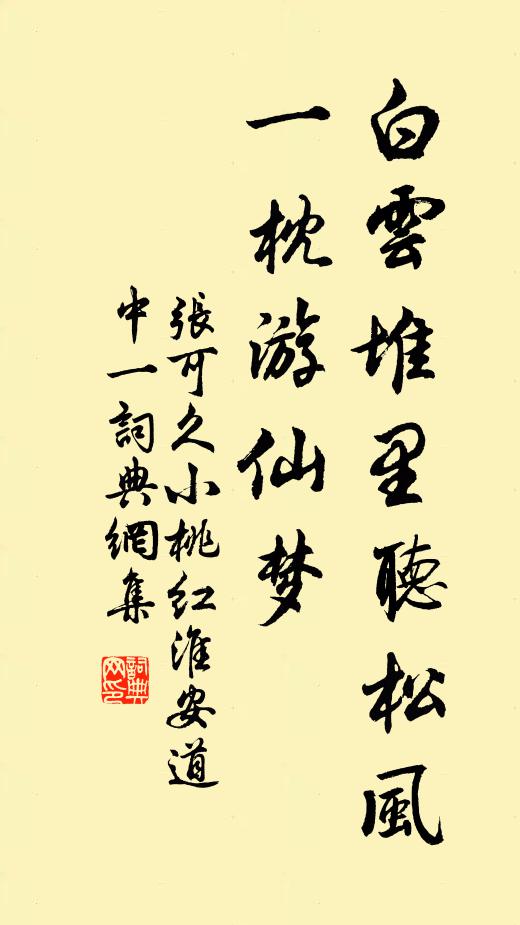 白雲堆里聽松風
一枕游仙梦
張可久小桃红淮安道
中一詞典網集
詞典網印